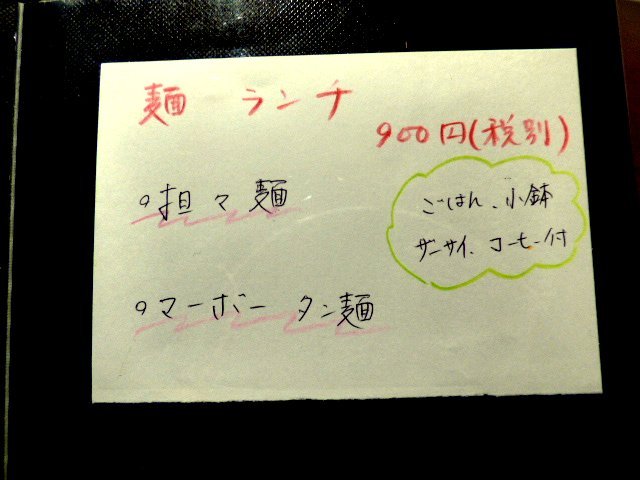 麺 ランチ
900円(税別)
○担々麺
ごはん、小鉢
ザーサイ、コーヒー付
○マーボータン麺